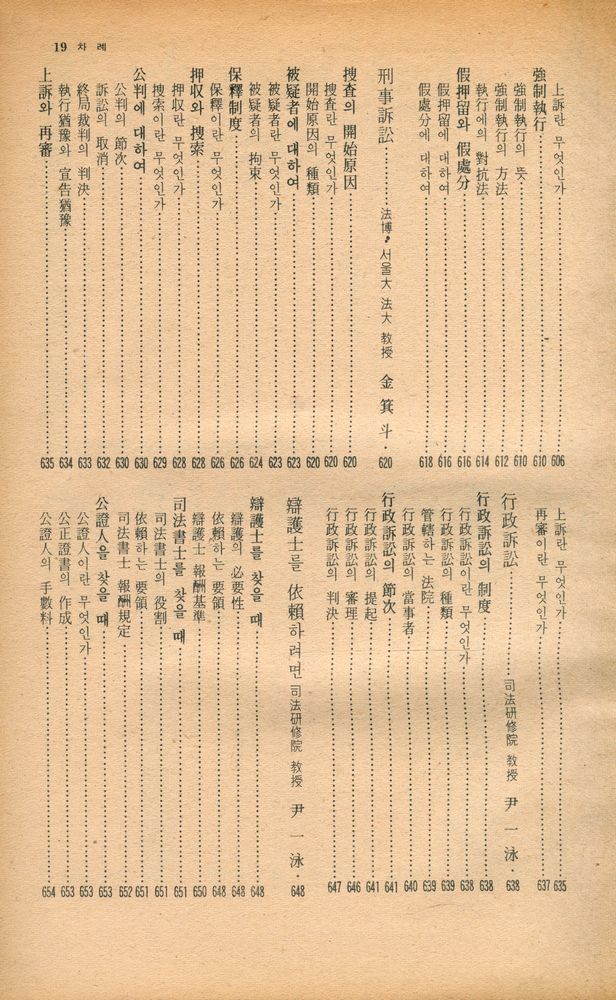 19 차례
上訴란 무엇인가 606
強制執行 610
強制執行의 뜻 610
強制執行의 方法 612
執行에의 對抗法 614
假押留와 假處分 616
假押留에 대하여 616
假處分에 대하여 618
刑事訴訟 法博・서울大 法大 教授 金箕斗 620
捜査의 開始原因 620
捜査란 무엇인가 620
開始原因의 種類 620
被疑者에 대하여 623
被疑者란 무엇인가 623
被疑者의 拘束 624
保釋制度 626
保釋이란 무엇인가 626
押収와 捜索 628
押収란 무엇인가 628
捜索이란 무엇인가 629
公判에 대하여 630
公判의 節次 630
訴訟의 取消 632
終局裁判의 判決 633
執行猶豫와 宣告猶豫 634
上訴와 再審 635
上訴란 무엇인가 635
再審이란 무엇인가 637
行政訴訟 司法研修院 教授 尹一泳 638
行政訴訟의 制度 638
行政訴訟이란 무엇인가 638
行政訴訟의 種類 639
管轄하는 法院 639
行政訴訟의 當事者 640
行政訴訟의 節次 641
行政訴訟의 提起 641
行政訴訟의 審理 646
行政訴訟의 判決 647
辯護士를 依賴하려면 司法研修院 教授 尹一泳 648
辯護士를 찾을 때 648
辯護의 必要性 648
依賴하는 要領 648
辯護士 報酬基準 650
司法書士를 찾을 때 651
司法書士의 役割 651
依賴하는 要領 651
司法書士 報酬規定 652
公證人을 찾을 때 653
公證人이란 무엇인가 653
公正證書의 作成 653
公證人의 手數料 654